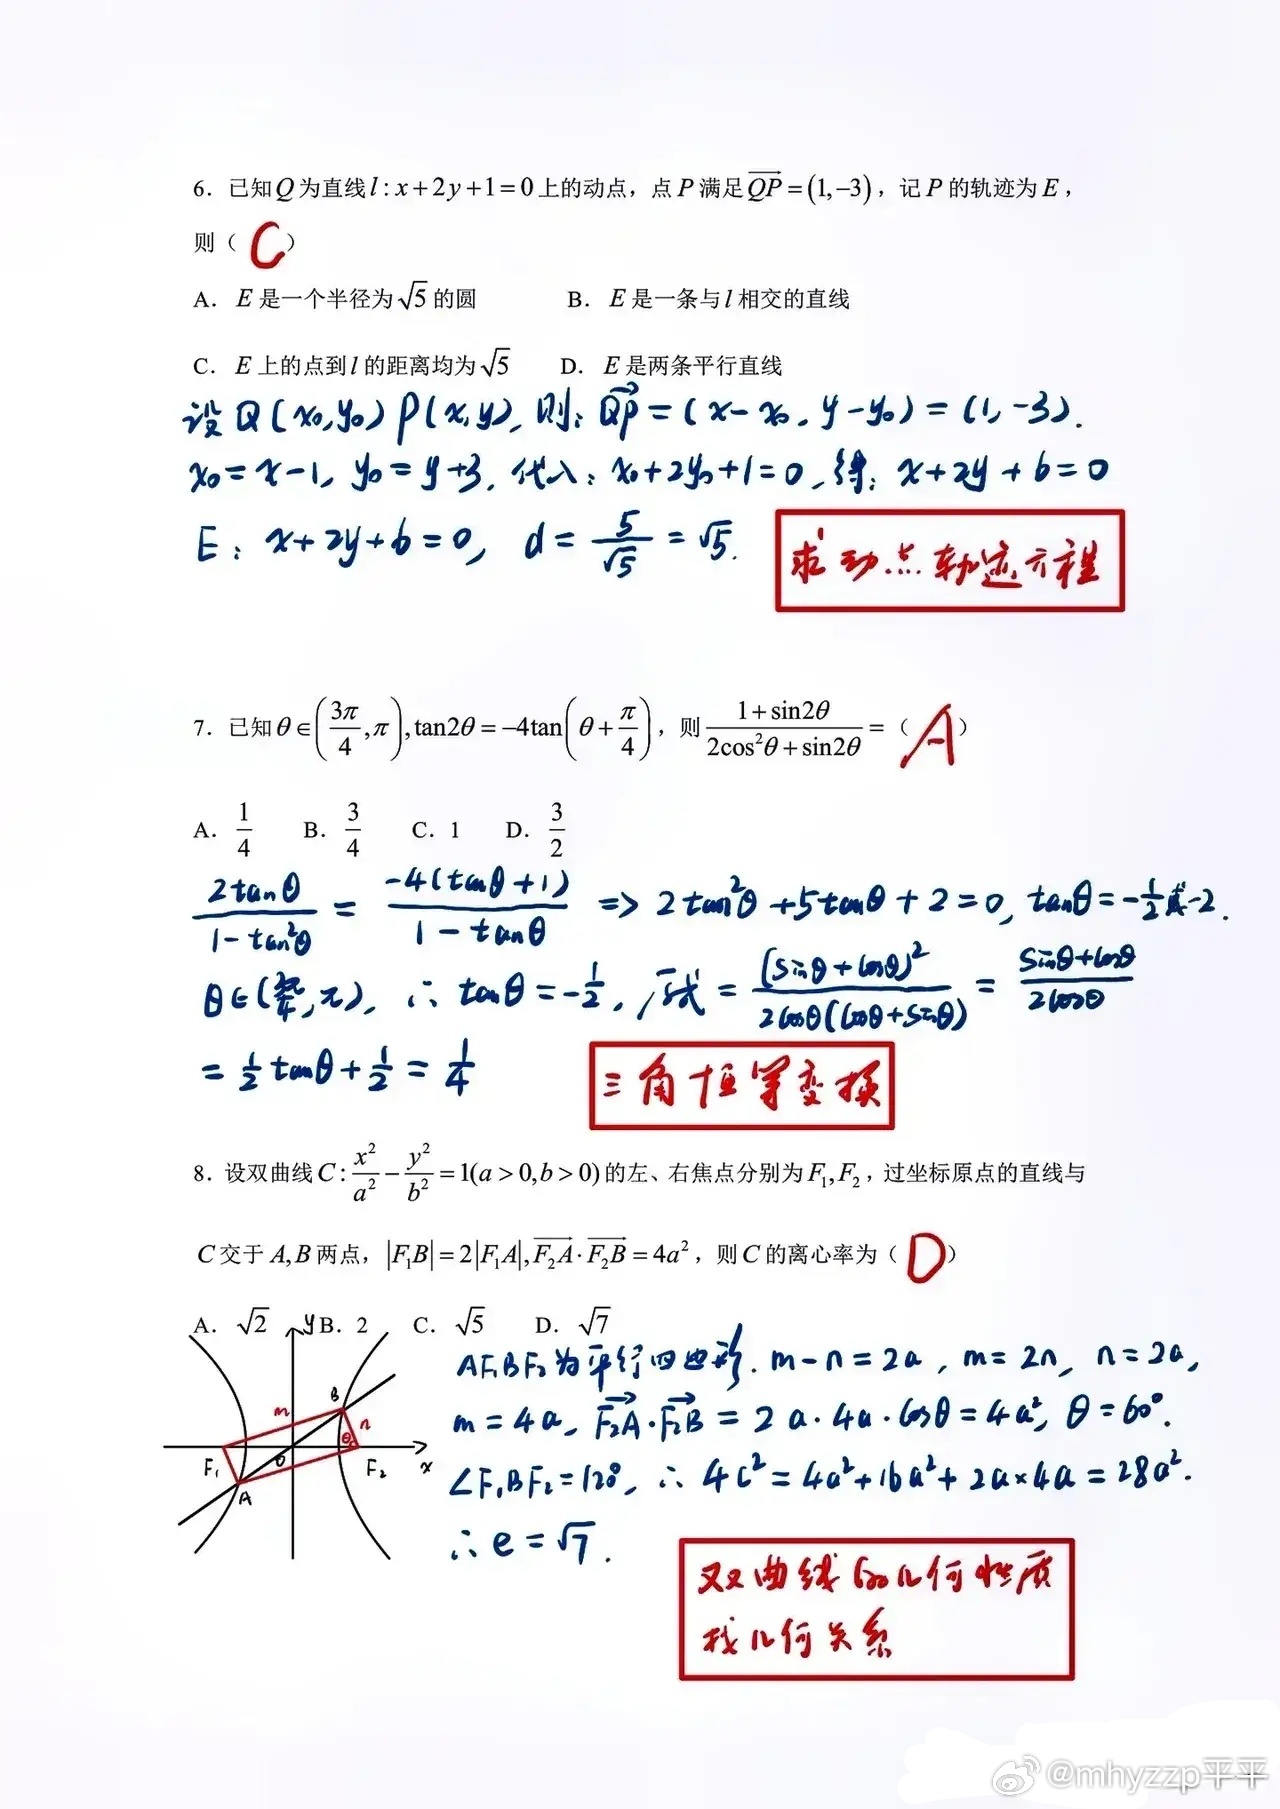 6．已知Q为直线l:x+2y+1=0上的动点，点P满足\overrightarrow{QP}=(1,-3)，记P的轨迹为E，
则（ C ）
A． E是一个半径为√5的圆 B． E是一条与l相交的直线
C． E上的点到l的距离均为√5 D． E是两条平行直线
设Q(x₀,y₀) P(x,y), 则: \overrightarrow{QP}=(x-x₀, y-y₀)=(1,-3).
x₀=x-1, y₀=y+3, 代入: x₀+2y₀+1=0, 得: x+2y+6=0
E: x+2y+6=0, d=5/√5=√5.
求动点轨迹方程
7．已知θ∈(3π/4,π),tan2θ=-4tan(θ+π/4)，则(1+sin2θ)/(2cos²θ+sin2θ)=（ A ）
A．1/4 B．3/4 C．1 D．3/2
2tanθ/(1-tan²θ)=-4(tanθ+1)/(1-tanθ) => 2tan²θ+5tanθ+2=0, tanθ=-1/2或-2.
θ∈(3π/4,π), ∴tanθ=-1/2, 原式=(sinθ+cosθ)²/(2cosθ(cosθ+sinθ))=(sinθ+cosθ)/(2cosθ)
=1/2tanθ+1/2=1/4
三角恒等变换
8．设双曲线C:x²/a²-y²/b²=1(a>0,b>0)的左、右焦点分别为F₁,F₂，过坐标原点的直线与
C交于A,B两点，|F₁B|=2|F₁A|,\overrightarrow{F₂A}·\overrightarrow{F₂B}=4a²，则C的离心率为（ D ）
A．√2 B．2 C．√5 D．√7
y
B
m
n
θ
F₁
O
F₂
x
A
AF₁BF₂为平行四边形. m-n=2a, m=2n, n=2a,
m=4a, \overrightarrow{F₂A}·\overrightarrow{F₂B}=2a·4a·cosθ=4a², θ=60°.
∠F₁BF₂=120°, ∴4c²=4a²+16a²+2a×4a=28a².
∴e=√7.
双曲线的几何性质
找几何关系
@mhyzzp平平